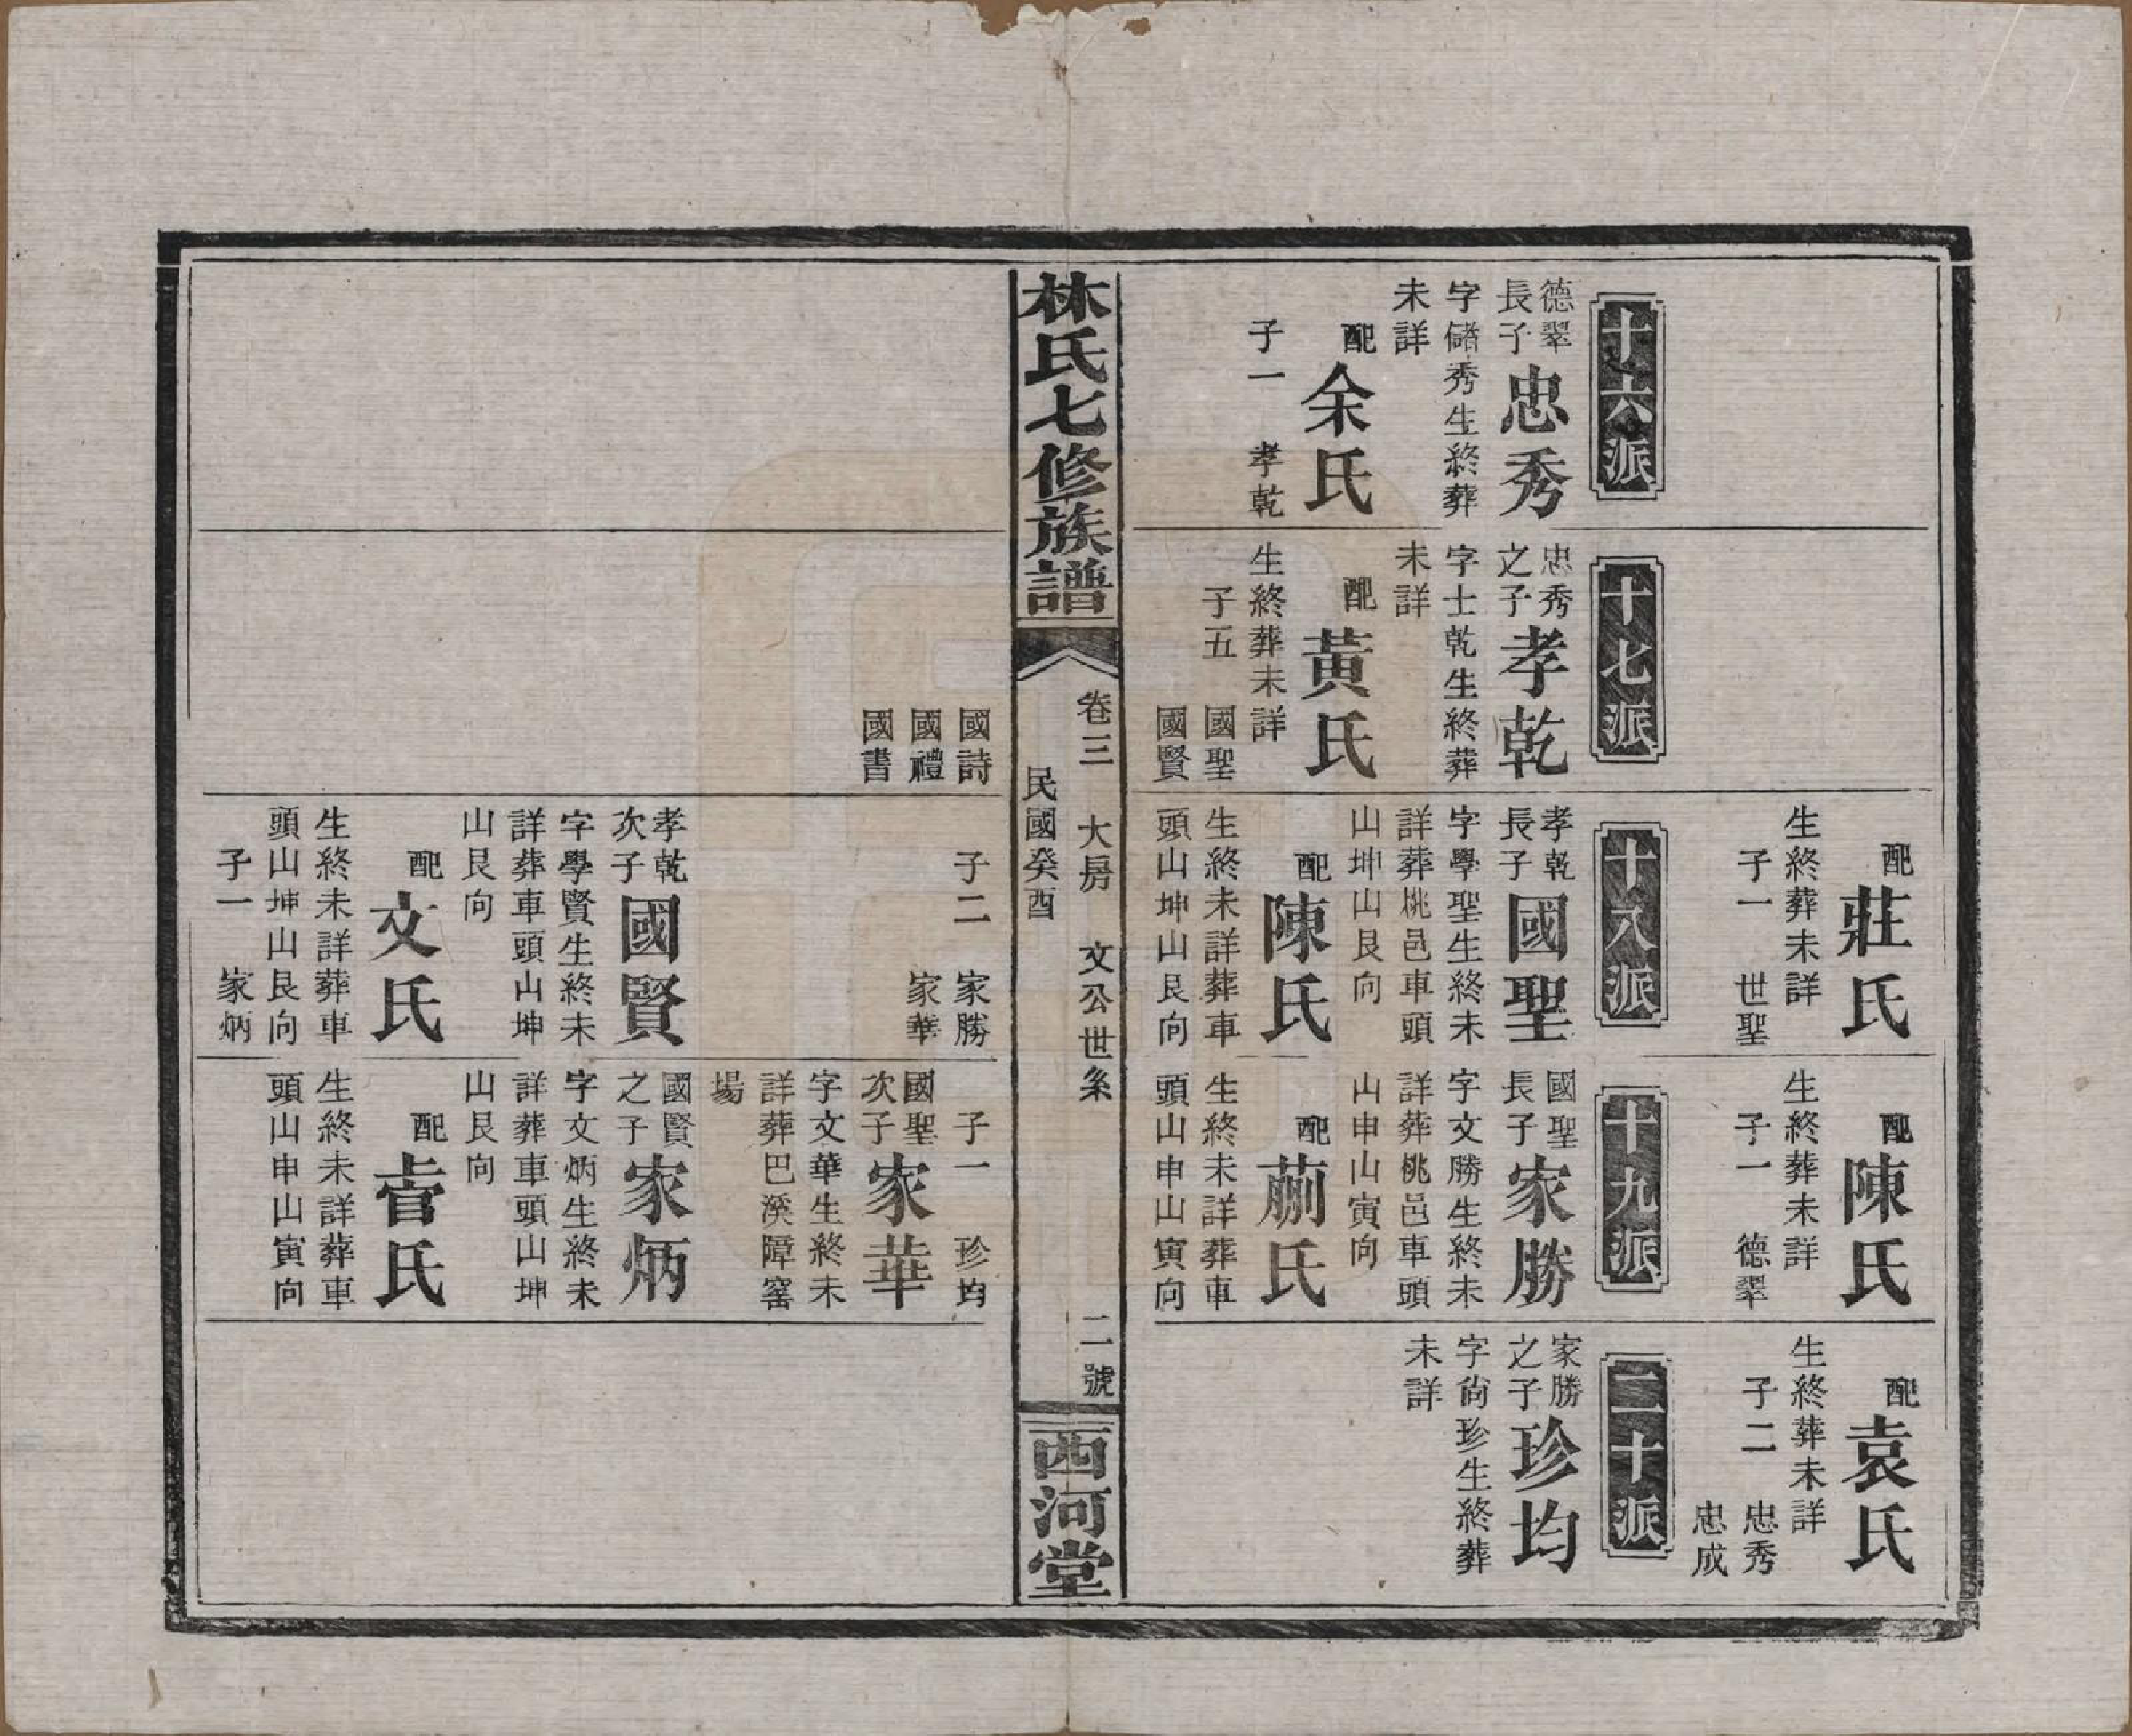 配莊氏
生終葬未詳
子一 世聖
配陳氏
生終葬未詳
子一 德翠
配袁氏
生終葬未詳
子二 忠秀
忠成
十六派
德翠
長子
忠秀
字儲秀生終葬
未詳
配余氏
子一 孝乾
十七派
忠秀
之子
孝乾
字士乾生終葬
未詳
配黃氏
生終葬未詳
子五 國聖
國賢
十八派
孝乾
長子
國聖
字學聖生終未
詳葬桃邑車頭
山坤山艮向
配陳氏
生終未詳葬車
頭山坤山艮向
十九派
國聖
長子
家勝
字文勝生終未
詳葬桃邑車頭
山申山寅向
配萠氏
生終未詳葬車
頭山申山寅向
二十派
家勝
之子
珍均
字尙珍生終葬
未詳
林氏七修族譜
卷三 大房 文公世系 二號
民國癸酉
西河堂
國詩
國禮
國書
子二 家勝
家華
孝乾
次子
國賢
字學賢生終未
詳葬車頭山坤
山艮向
配文氏
生終未詳葬車
頭山坤山艮向
子一 家炳
子一 珍均
國聖
次子
家華
字文華生終未
詳葬巴溪障窰
場
國賢
之子
家炳
字文炳生終未
詳葬車頭山坤
山艮向
配氏
生終未詳葬車
頭山申山寅向